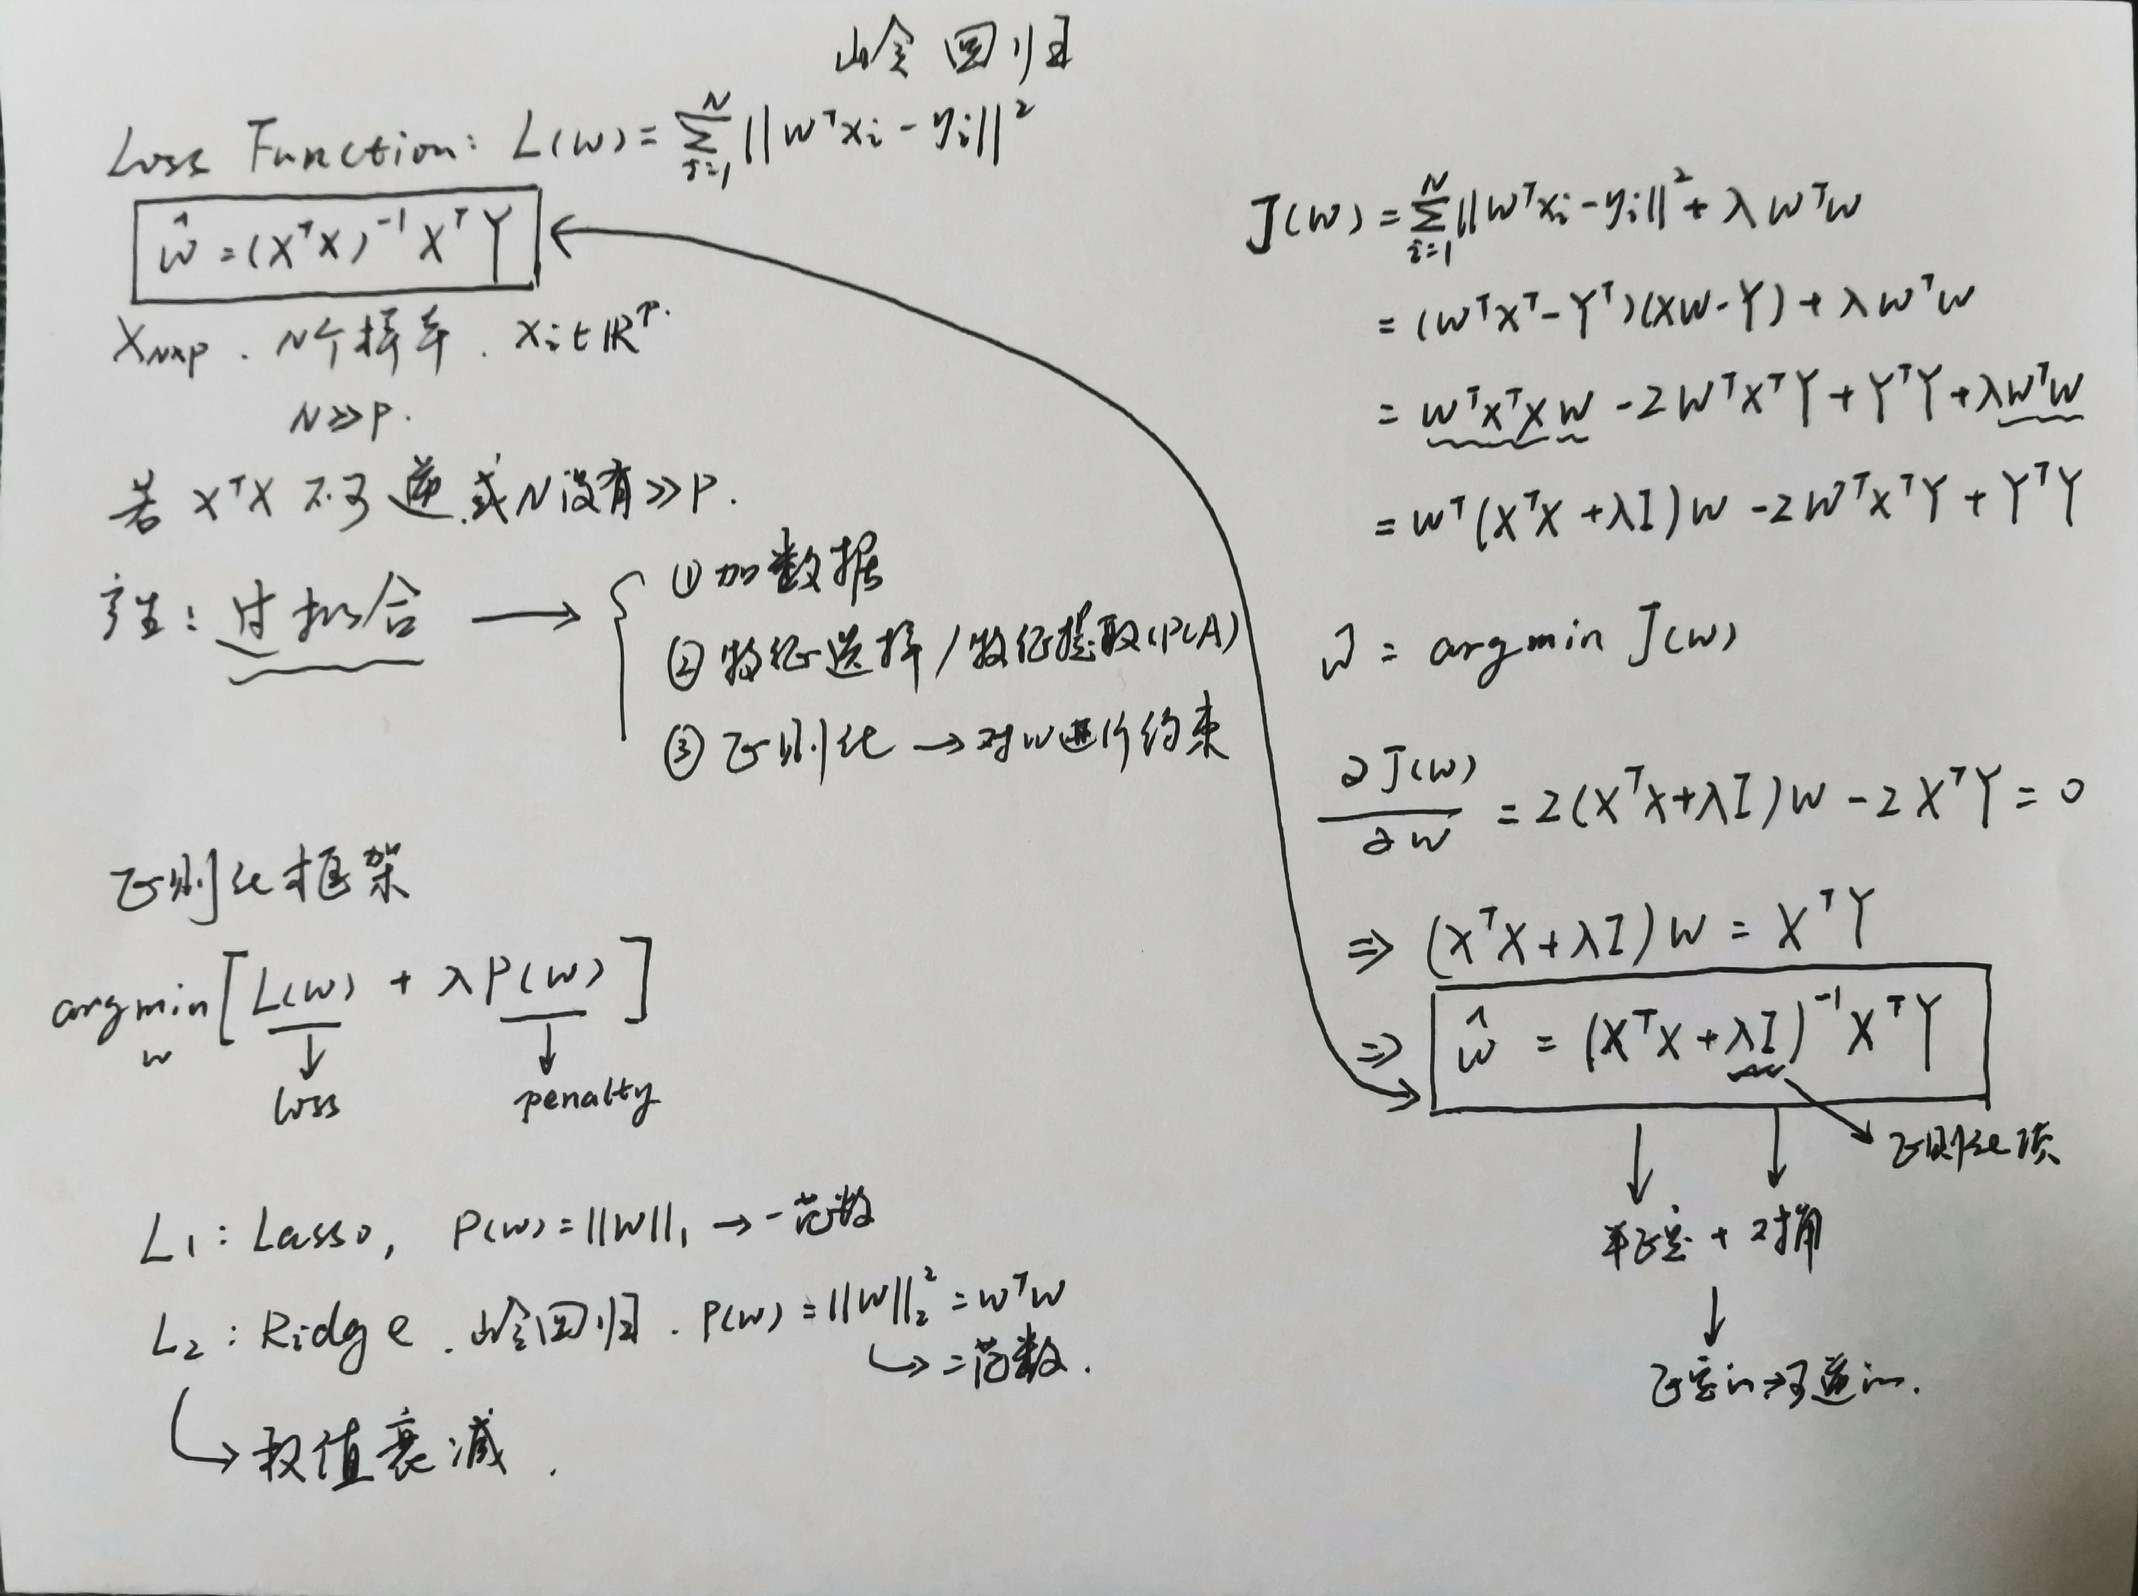 岭回归
Loss Function: L(w) = ∑_{i=1}^{N} ||w^T x_i - y_i||^2
ŵ = (X^T X)^{-1} X^T Y
X_{N×p} . N个样本 . x_i ∈ ℝ^p.
N ≫ p.
若 X^T X 不可逆.或N没有≫p.
产生: 过拟合 →
① 加数据
② 特征选择/特征提取(PCA)
③ 正则化 → 对w进行约束
正则化框架
argmin_w [L(w) + λP(w)]
↓ loss ↓ penalty
L1: Lasso, P(w) = ||w||_1 → 一范数
L2: Ridge . 岭回归 . P(w) = ||w||_2^2 = w^T w
↳ 二范数.
↳ 权值衰减 .
J(w) = ∑_{i=1}^{N} ||w^T x_i - y_i||^2 + λ w^T w
= (w^T X^T - Y^T)(Xw - Y) + λ w^T w
= w^T X^T X w - 2 w^T X^T Y + Y^T Y + λ w^T w
= w^T (X^T X + λI) w - 2 w^T X^T Y + Y^T Y
ŵ = argmin J(w)
∂J(w)/∂w = 2(X^T X + λI) w - 2 X^T Y = 0
⇒ (X^T X + λI) w = X^T Y
⇒ ŵ = (X^T X + λI)^{-1} X^T Y
正则化项
半正定 + 对角
↓
正定的→可逆的.